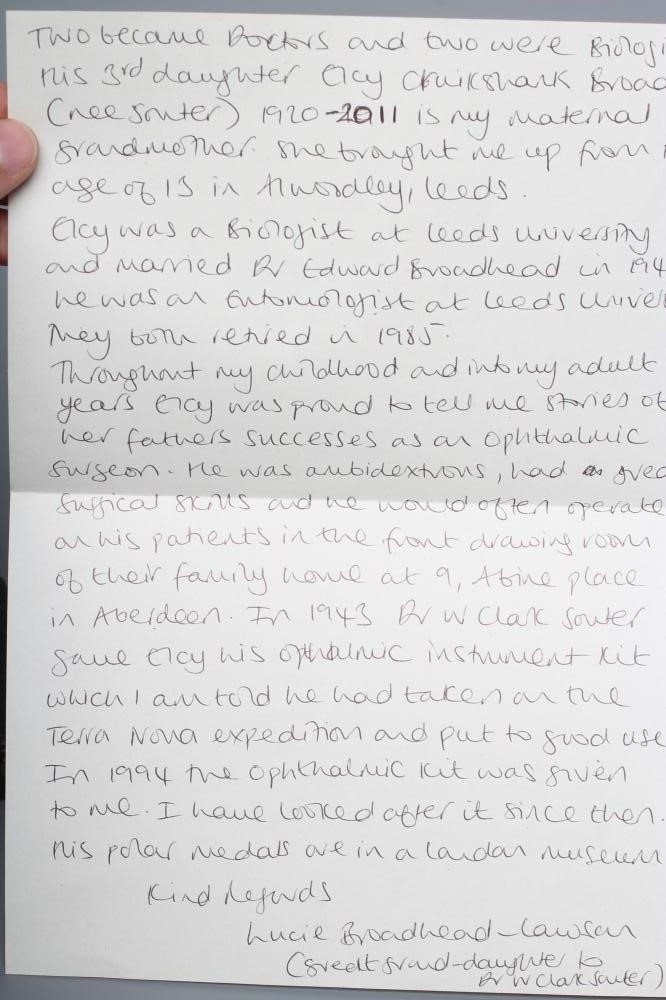 Two became Doctors and two were Biologi
His 3rd daughter Elcy Cruikshank Broad
(nee Souter) 1920-2011 is my maternal
grandmother. She brought me up from
age of 13 in Alwoodley, Leeds.
Elcy was a Biologist at Leeds University
and married Dr Edward Broadhead in 194
he was an Entomologist at Leeds Univer
They both retired in 1985.
Throughout my childhood and into my adult
years Elcy was proud to tell me stories of
her fathers successes as an Ophthalmic
Surgeon. He was ambidextrous, had grea
surgical skills and he would often operate
on his patients in the front drawing room
of their family home at 9, Albine place
in Aberdeen. In 1943 Dr W Clark Souter
gave Elcy his opthalmic instrument kit
which I am told he had taken on the
Terra Nova expedition and put to good use
In 1994 the Ophthalmic kit was given
to me. I have looked after it since then.
His polar medals are in a London museum
Kind Regards
Lucie Broadhead-Lawson
(Great grand-daughter to
Dr W Clark Souter)